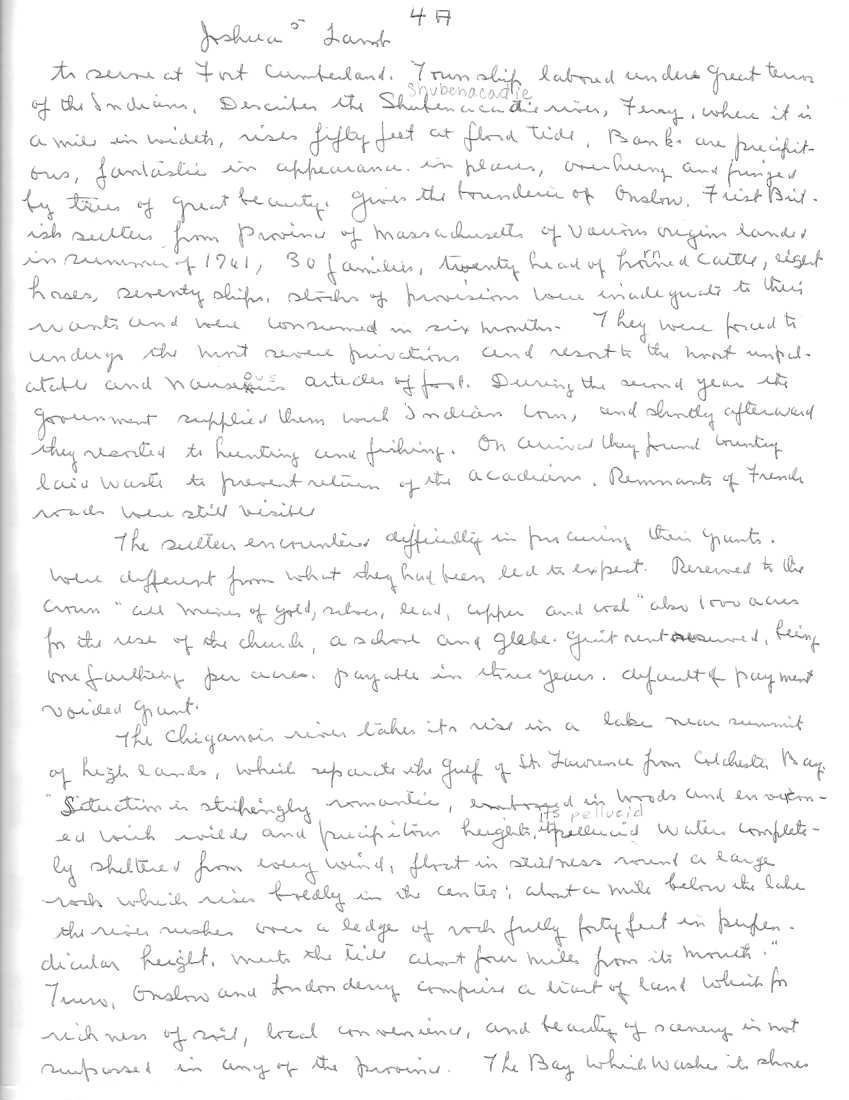 4 A
Joshua 5 Lamb
to serve at Fort Cumberland. Township labored under great terror
Shubenacadie
of the Indians. Describes the Shubenacadie river, Ferry, where it is
a mile in width, rises fifty feet at flood tide. Banks are precipit-
ous, fantastic in appearance in places, overhung and fringed
by trees of great beauty. Gives the boundaries of Onslow. First Brit-
ish settlers from Province of Massachusetts of various origins landed
in summer of 1761, 30 families, twenty head of horned cattle, eight
horses, seventy ships, stocks of provisions were inadequate to their
wants and were consumed in six months. They were forced to
undergo the most severe privations and resort to the most unpal-
atable and nauseous articles of food. During the second year the
government supplied them with Indian corn, and shortly afterward
they resorted to hunting and fishing. On arrival they found country
laid waste to prevent return of the Acadians. Remnants of French
roads were still visible
The settlers encountered difficulty in procuring their grants.
Were different from what they had been led to expect. Reserved to the
Crown "all mines of gold, silver, lead, copper and coal" also 1000 acres
for the use of the church, a school and glebe. Quit rent reserved, being
one farthing per acre. payable in three years. default of payment
voided grant.
The Chiganois river takes its rise in a lake near summit
of high lands, which separate the Gulf of St. Lawrence from Colchester Bay.
"Situation is strikingly romantic, embossed in woods and environ-
its pellucid
ed with wilds and precipitous heights, its pellucid waters complete-
ly sheltered from every wind, float in stillness round a large
rock which rises boldly in the center; about a mile below the lake
the river rushes over a ledge of rock fully forty feet in perpen-
dicular height, meets the tide about four miles from its mouth."
Truro, Onslow and Londonderry comprise a tract of land which for
richness of soil, local convenience, and beauty of scenery is not
surpassed in any of the province. The Bay which washes its shores